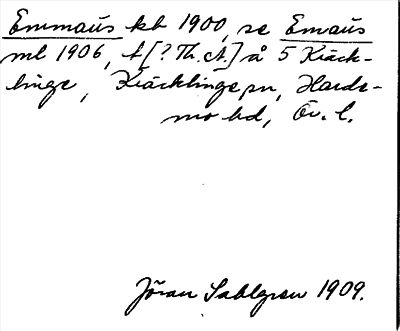 Emmaüs kb 1900, se Emaüs
ml 1906, t [? Th. ct.] å 5 Kräck-
linge, Kräcklinge sn, Hards-
mo hd, Ör. l.
Jöran Sahlgren 1909.